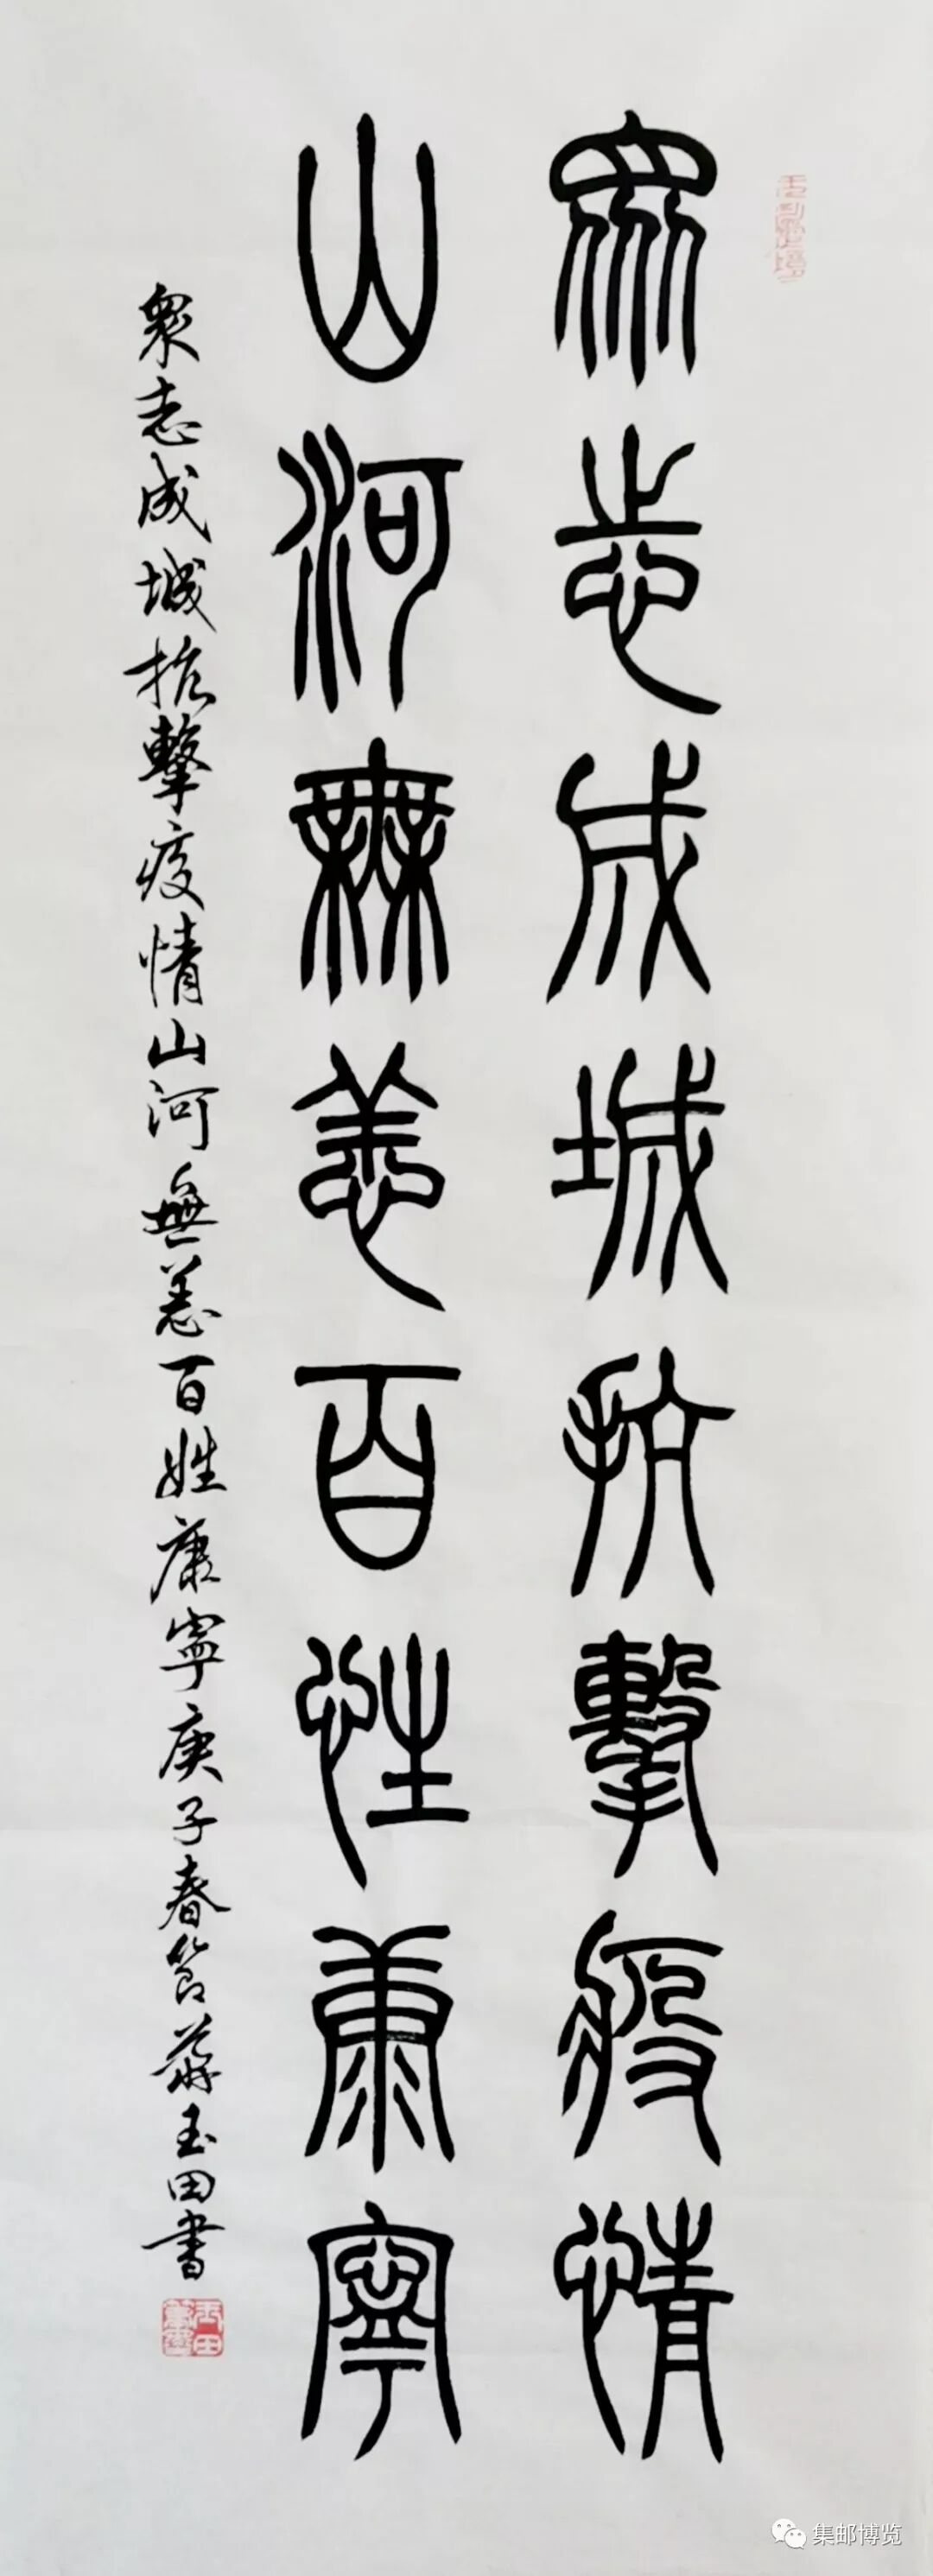 眾志成城抗擊疫情
山河無恙百姓康寧
眾志成城抗擊疫情山河無恙百姓康寧庚子春節蕭玉田書
集邮博览